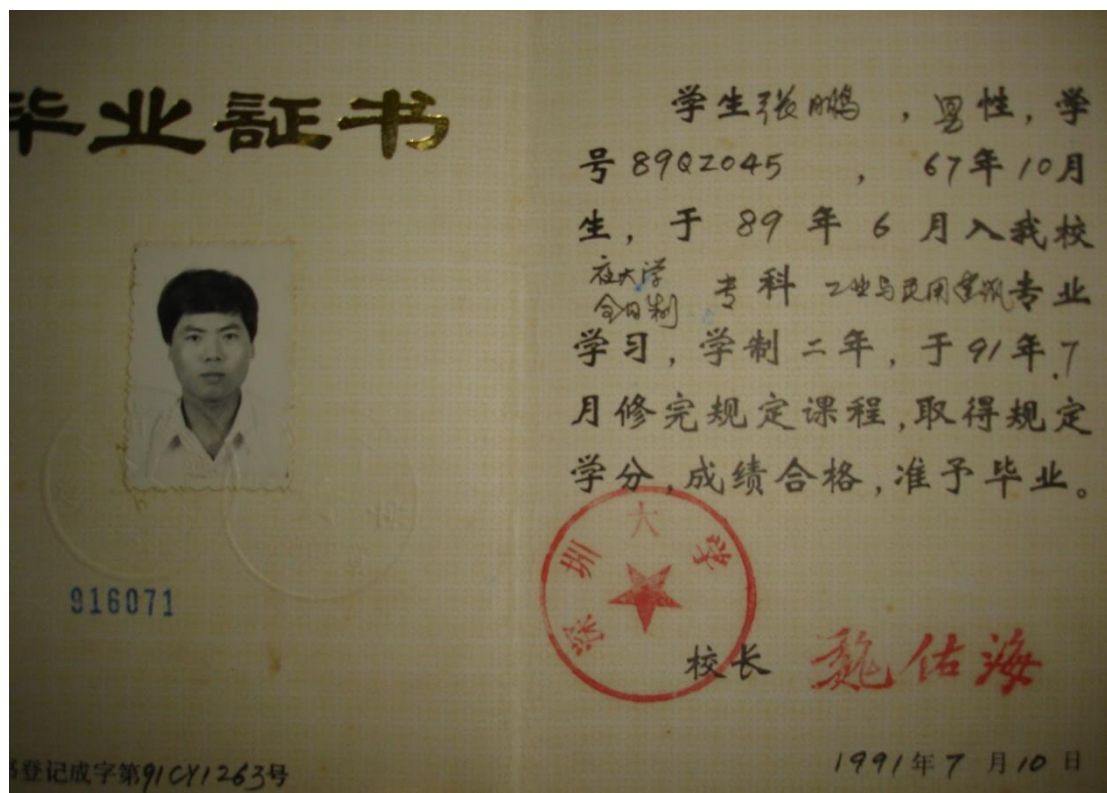 毕业証书
916071
登记成字第91CY1263号
学生张鹏，男性，学
号89QZ045，67年10月
生，于89年6月入我校
夜大学
全日制 专科 工业与民用建筑专业
学习，学制二年，于91年7
月修完规定课程，取得规定
学分，成绩合格，准予毕业。
深圳大学
校长 魏佑海
1991年7月10日